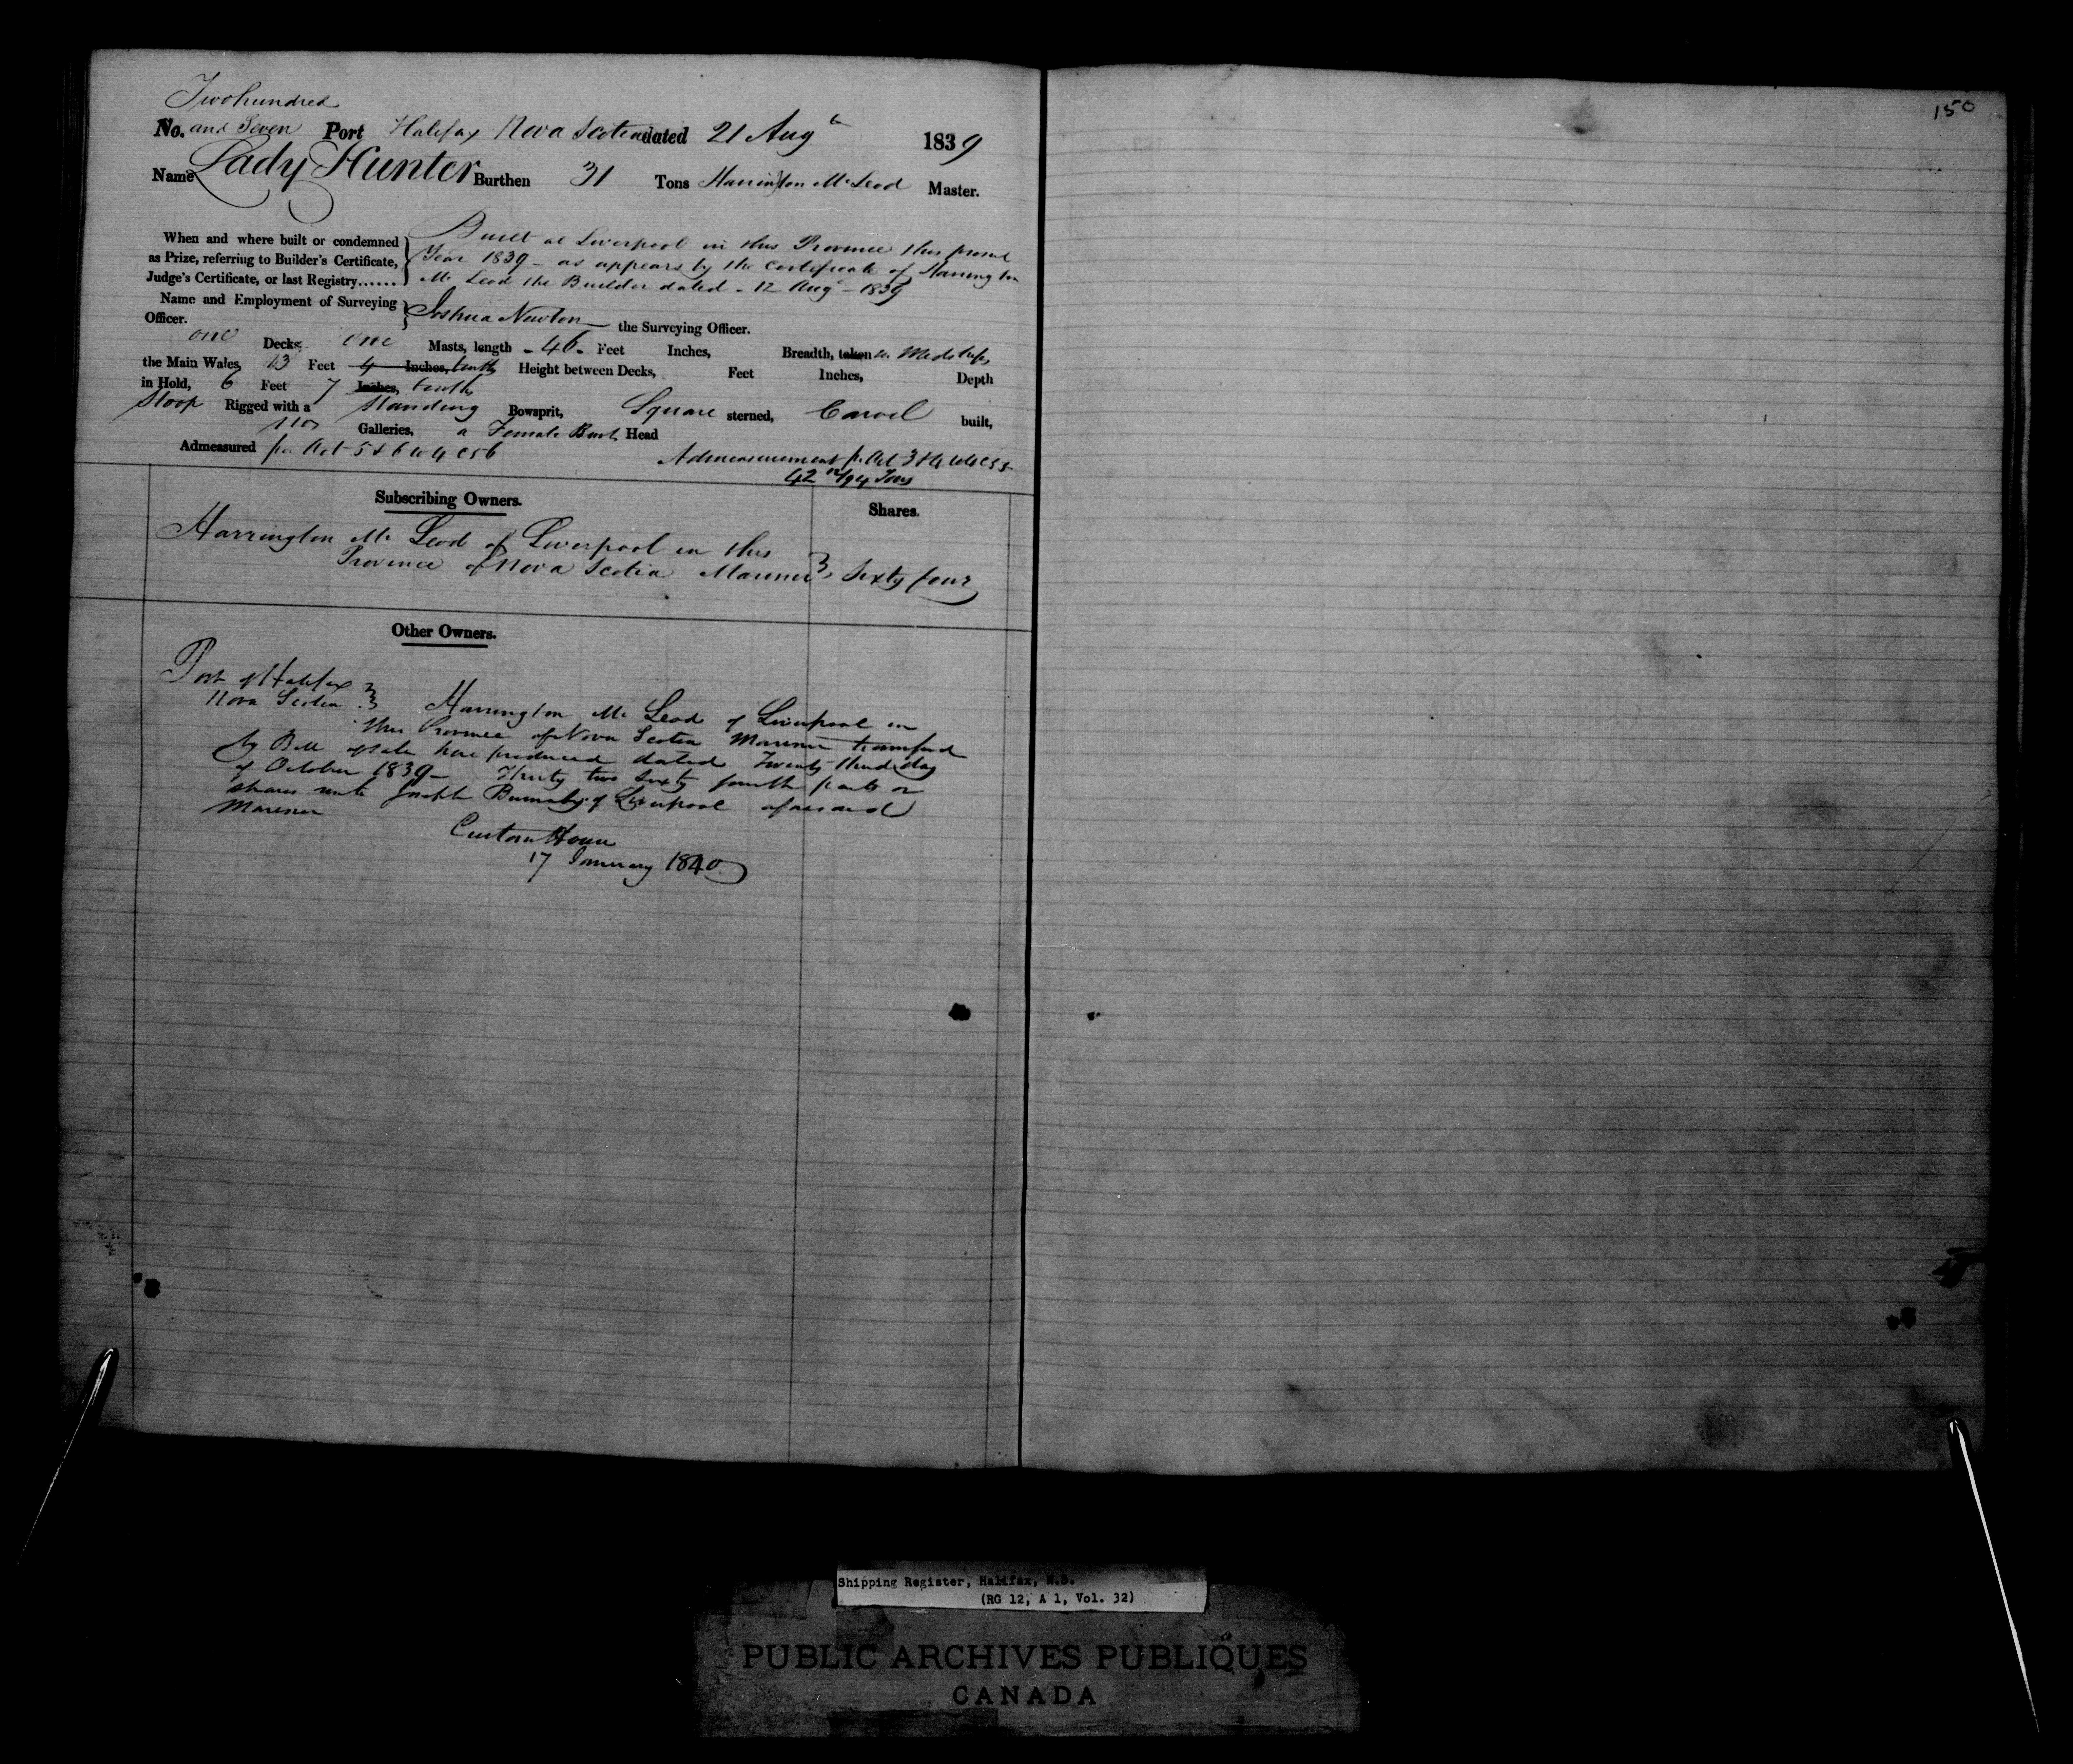 150
Two hundred
No. and Seven Port Halifax Nova Scotia dated 21 Augt 1839
Name Lady Hunter Burthen 31 Tons Harrington Mc Leod Master.
When and where built or condemned as Prize, referring to Builder's Certificate, Judge's Certificate, or last Registry......
Built at Liverpool in this Province this present
Year 1839 - as appears by the Certificate of Harrington
Mc Leod the Builder dated - 12 Augt - 1839
Name and Employment of Surveying Officer.
Joshua Newton the Surveying Officer.
one Decks, one Masts, length - 46 - Feet Inches, Breadth, taken in Midships
the Main Wales, 13 Feet 4 Inches, tenths Height between Decks, Feet Inches, Depth
in Hold, 6 Feet 7 Inches, tenths
Sloop Rigged with a Standing Bowsprit, Square sterned, Carvel built,
No Galleries, a Female Bust Head
Admeasured pr Act 5 & 6 W 4 C 56
Admeasurement pr Act 3 & 4 W 4 C 55
42 12/94 Tons
Subscribing Owners. Shares.
Harrington Mc Leod of Liverpool in this
Province of Nova Scotia Mariner Sixty four
Other Owners.
Port of Halifax
Nova Scotia
Harrington Mc Leod of Liverpool in
this Province of Nova Scotia Mariner transferred
by Bill of sale here produced dated Twenty third day
of October 1839 - Thirty two sixty fourth parts or
shares unto Joseph Burnaby of Liverpool aforesaid
Mariner
Custom House
17 January 1840
Shipping Register, Halifax, N.S.
(RG 12, A 1, Vol. 32)
PUBLIC ARCHIVES PUBLIQUES
CANADA